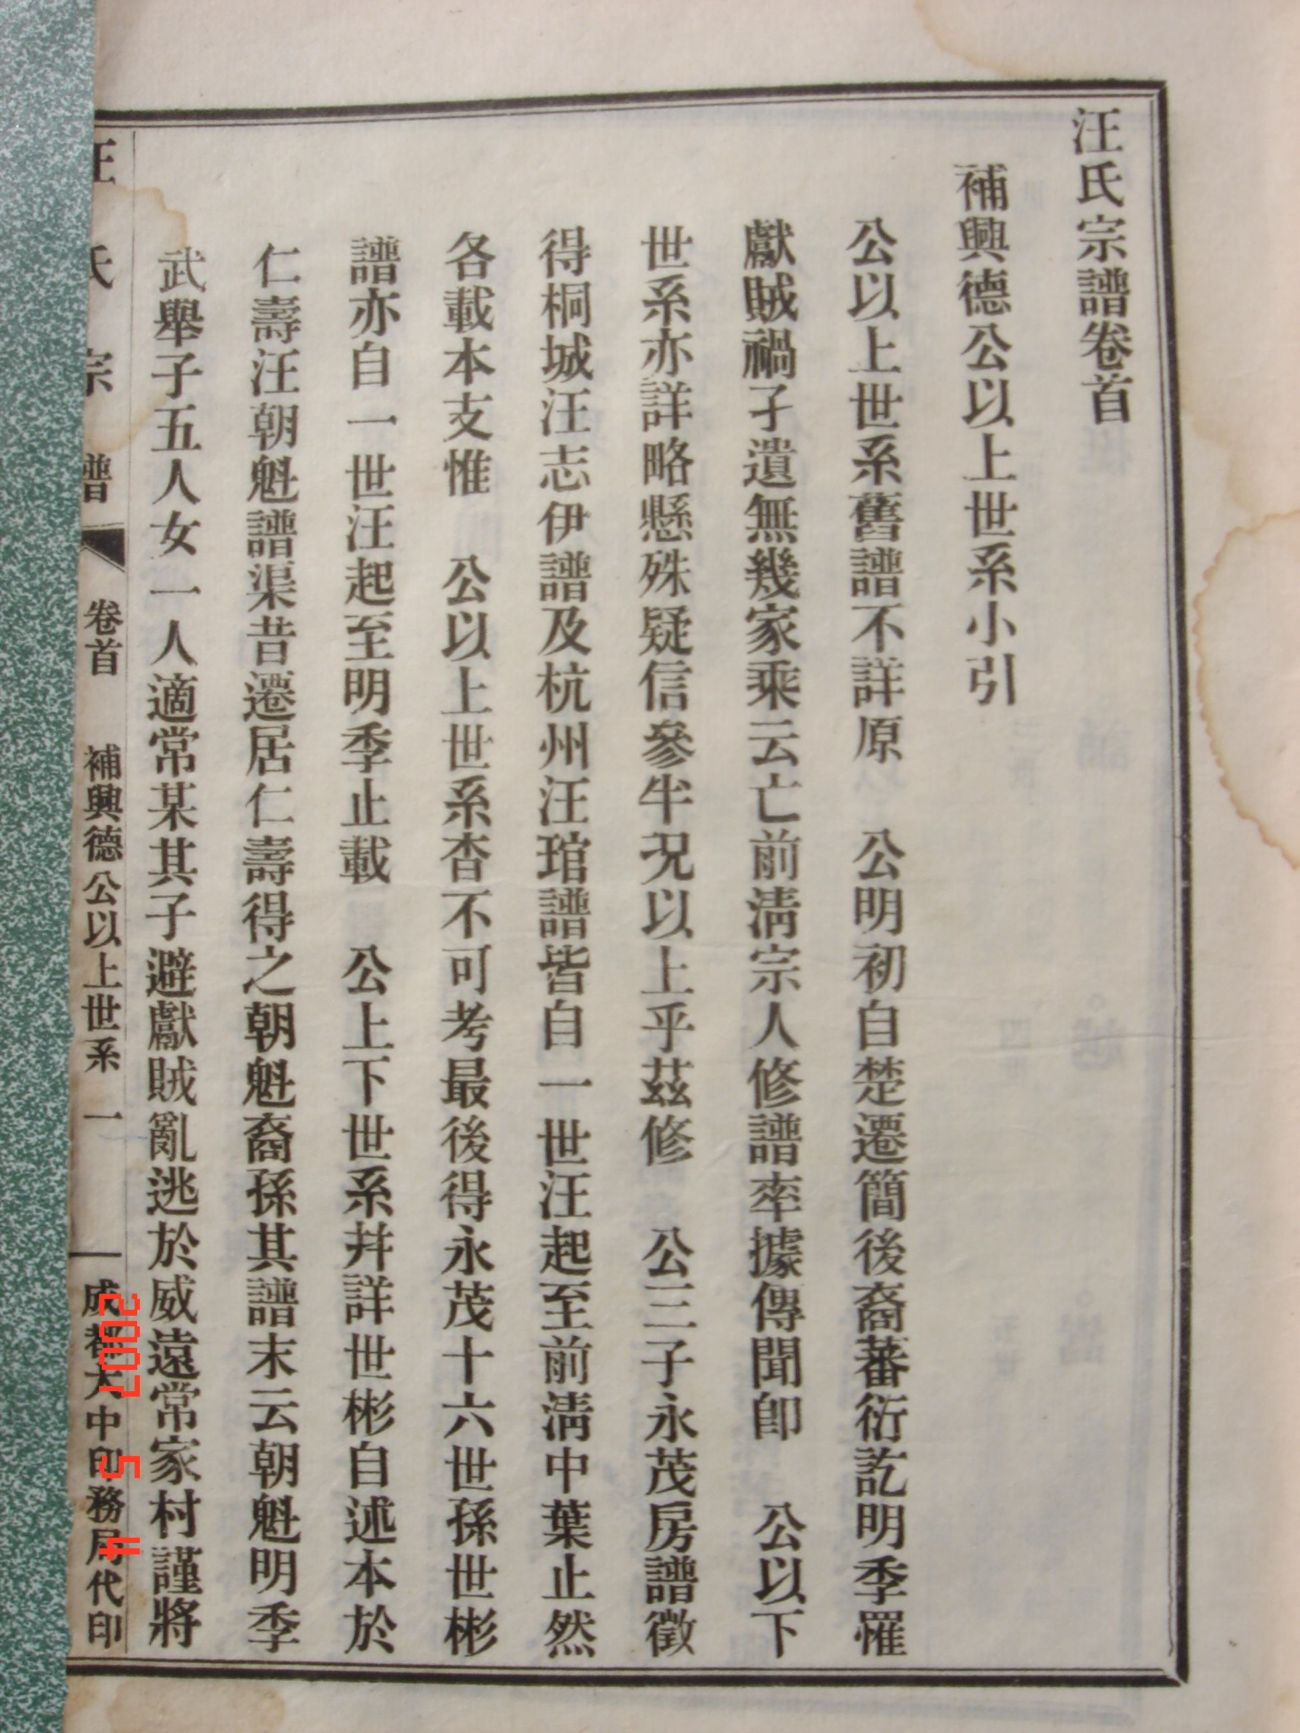 汪氏宗譜卷首
補興德公以上世系小引
公以上世系舊譜不詳原　公明初自楚遷簡後裔蕃衍訖明季罹
獻賊禍孑遺無幾家乘云亡前淸宗人修譜率據傳聞卽　公以下
世系亦詳略懸殊疑信參半况以上乎茲修　公三子永茂房譜徵
得桐城汪志伊譜及杭州汪琯譜皆自一世汪起至前淸中葉止然
各載本支惟　公以上世系杳不可考最後得永茂十六世孫世彬
譜亦自一世汪起至明季止載　公上下世系幷詳世彬自述本於
仁壽汪朝魁譜渠昔遷居仁壽得之朝魁裔孫其譜末云朝魁明季
武舉子五人女一人適常某其子避獻賊亂逃於威遠常家村謹將
汪氏宗譜　卷首　補興德公以上世系　一　成都大中印務局代印
2007 5 4